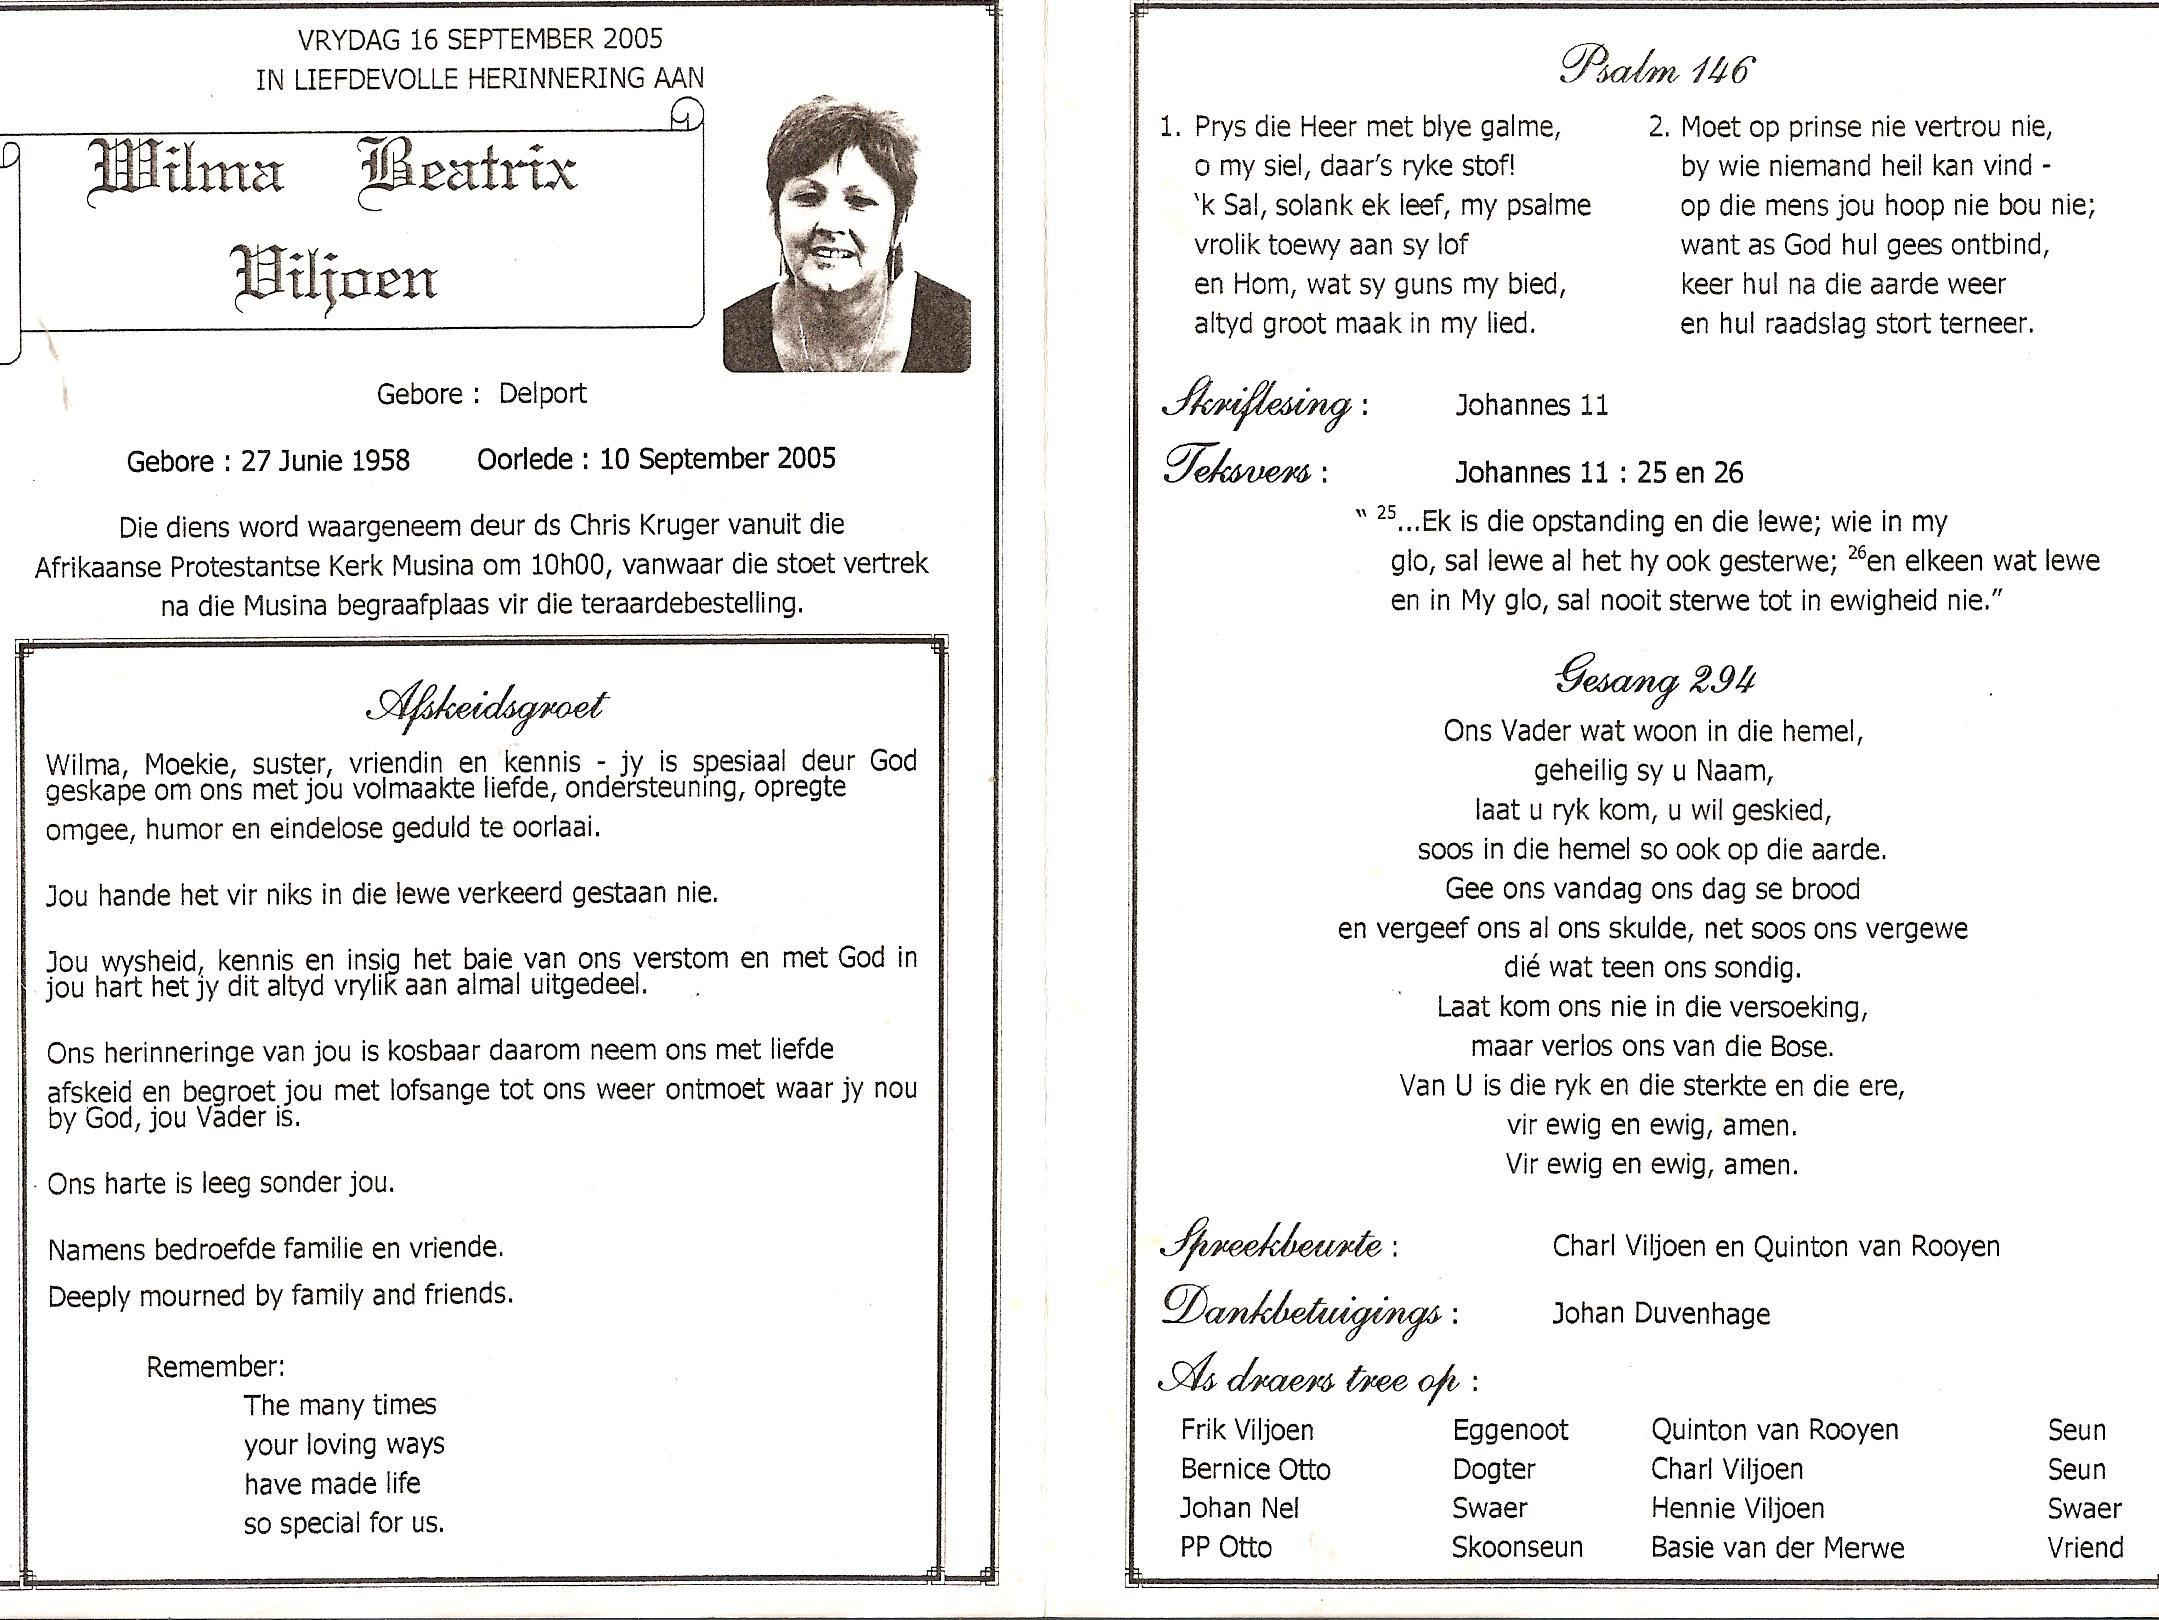 VRYDAG 16 SEPTEMBER 2005
IN LIEFDEVOLLE HERINNERING AAN
Wilma Beatrix
Viljoen
Gebore : Delport
Gebore : 27 Junie 1958 Oorlede : 10 September 2005
Die diens word waargeneem deur ds Chris Kruger vanuit die
Afrikaanse Protestantse Kerk Musina om 10h00, vanwaar die stoet vertrek
na die Musina begraafplaas vir die teraardebestelling.
Afskeidsgroet
Wilma, Moekie, suster, vriendin en kennis - jy is spesiaal deur God
geskape om ons met jou volmaakte liefde, ondersteuning, opregte
omgee, humor en eindelose geduld te oorlaai.
Jou hande het vir niks in die lewe verkeerd gestaan nie.
Jou wysheid, kennis en insig het baie van ons verstom en met God in
jou hart het jy dit altyd vrylik aan almal uitgedeel.
Ons herinneringe van jou is kosbaar daarom neem ons met liefde
afskeid en begroet jou met lofsange tot ons weer ontmoet waar jy nou
by God, jou Vader is.
Ons harte is leeg sonder jou.
Namens bedroefde familie en vriende.
Deeply mourned by family and friends.
Remember:
The many times
your loving ways
have made life
so special for us.
Psalm 146
1. Prys die Heer met blye galme,
o my siel, daar's ryke stof!
'k Sal, solank ek leef, my psalme
vrolik toewy aan sy lof
en Hom, wat sy guns my bied,
altyd groot maak in my lied.
2. Moet op prinse nie vertrou nie,
by wie niemand heil kan vind -
op die mens jou hoop nie bou nie;
want as God hul gees ontbind,
keer hul na die aarde weer
en hul raadslag stort terneer.
Skriflesing : Johannes 11
Teksvers : Johannes 11 : 25 en 26
" 25...Ek is die opstanding en die lewe; wie in my
glo, sal lewe al het hy ook gesterwe; 26en elkeen wat lewe
en in My glo, sal nooit sterwe tot in ewigheid nie."
Gesang 294
Ons Vader wat woon in die hemel,
geheilig sy u Naam,
laat u ryk kom, u wil geskied,
soos in die hemel so ook op die aarde.
Gee ons vandag ons dag se brood
en vergeef ons al ons skulde, net soos ons vergewe
dié wat teen ons sondig.
Laat kom ons nie in die versoeking,
maar verlos ons van die Bose.
Van U is die ryk en die sterkte en die ere,
vir ewig en ewig, amen.
Vir ewig en ewig, amen.
Spreekbeurte : Charl Viljoen en Quinton van Rooyen
Dankbetuigings : Johan Duvenhage
As draers tree op :
Frik Viljoen Eggenoot Quinton van Rooyen Seun
Bernice Otto Dogter Charl Viljoen Seun
Johan Nel Swaer Hennie Viljoen Swaer
PP Otto Skoonseun Basie van der Merwe Vriend